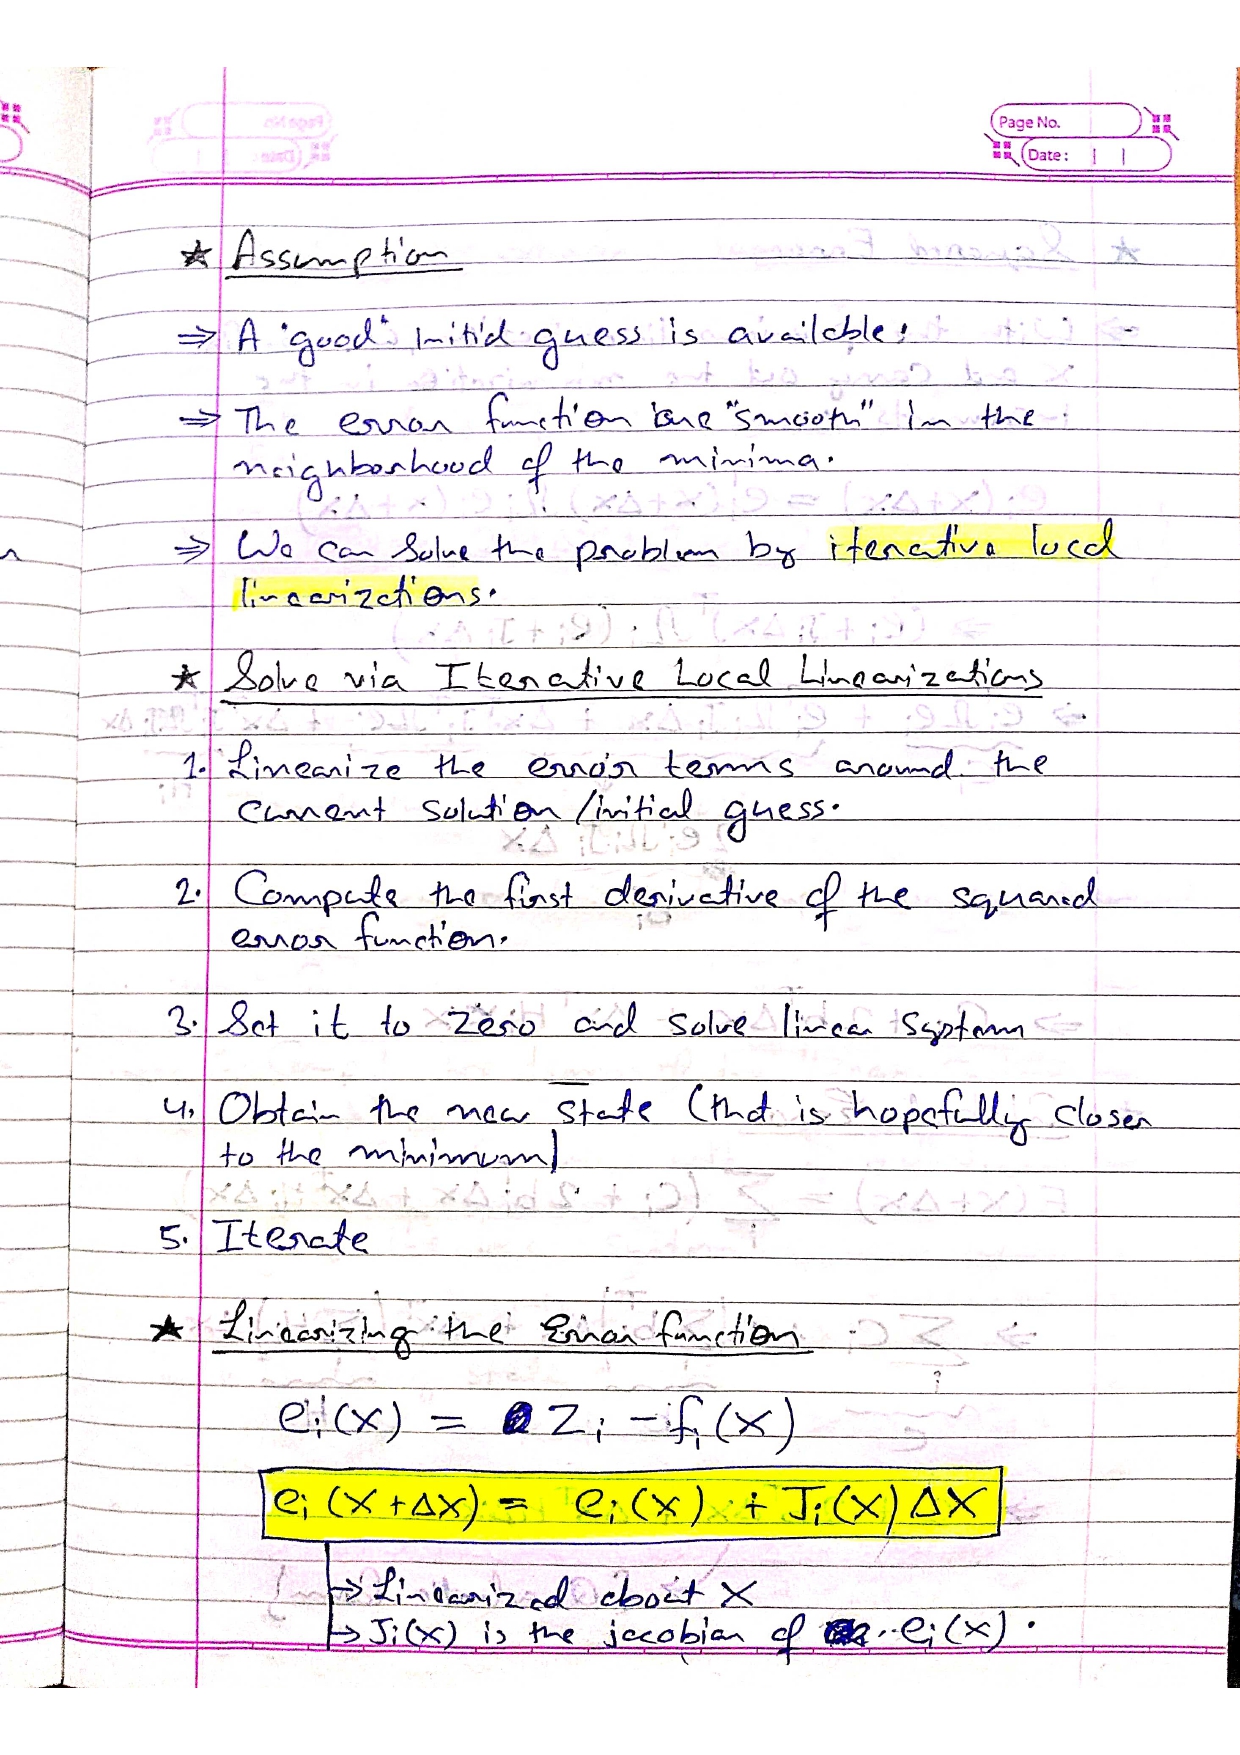 Page No.
Date:
★ Assumption
⇒ A "good" initial guess is available.
⇒ The error function are "smooth" in the
neighborhood of the minima.
⇒ We can solve the problem by iterative local
linearizations.
★ Solve via Iterative Local Linearizations
1. Linearize the error terms around the
current solution/initial guess.
2. Compute the first derivative of the squared
error function.
3. Set it to zero and solve linear system
4. Obtain the new state (that is hopefully closer
to the minimum)
5. Iterate
★ Linearizing the Error function
eᵢ(x) = Zᵢ - fᵢ(x)
eᵢ(x+Δx) = eᵢ(x) + Jᵢ(x)Δx
→ Linearized about x
→ Jᵢ(x) is the jacobian of eᵢ(x).